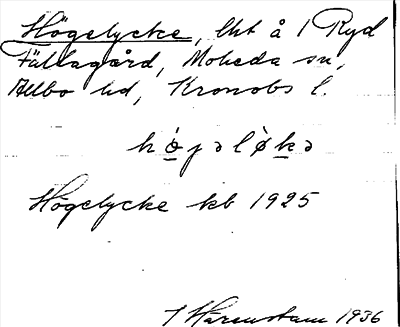 Högelycke, lht å 1 Ryd
Fällagård, Moheda sn,
Allbo hd, Kronobs l.
hö̱jəlø̀ḵə
Högelycke kb 1925
J Härenstam 1936